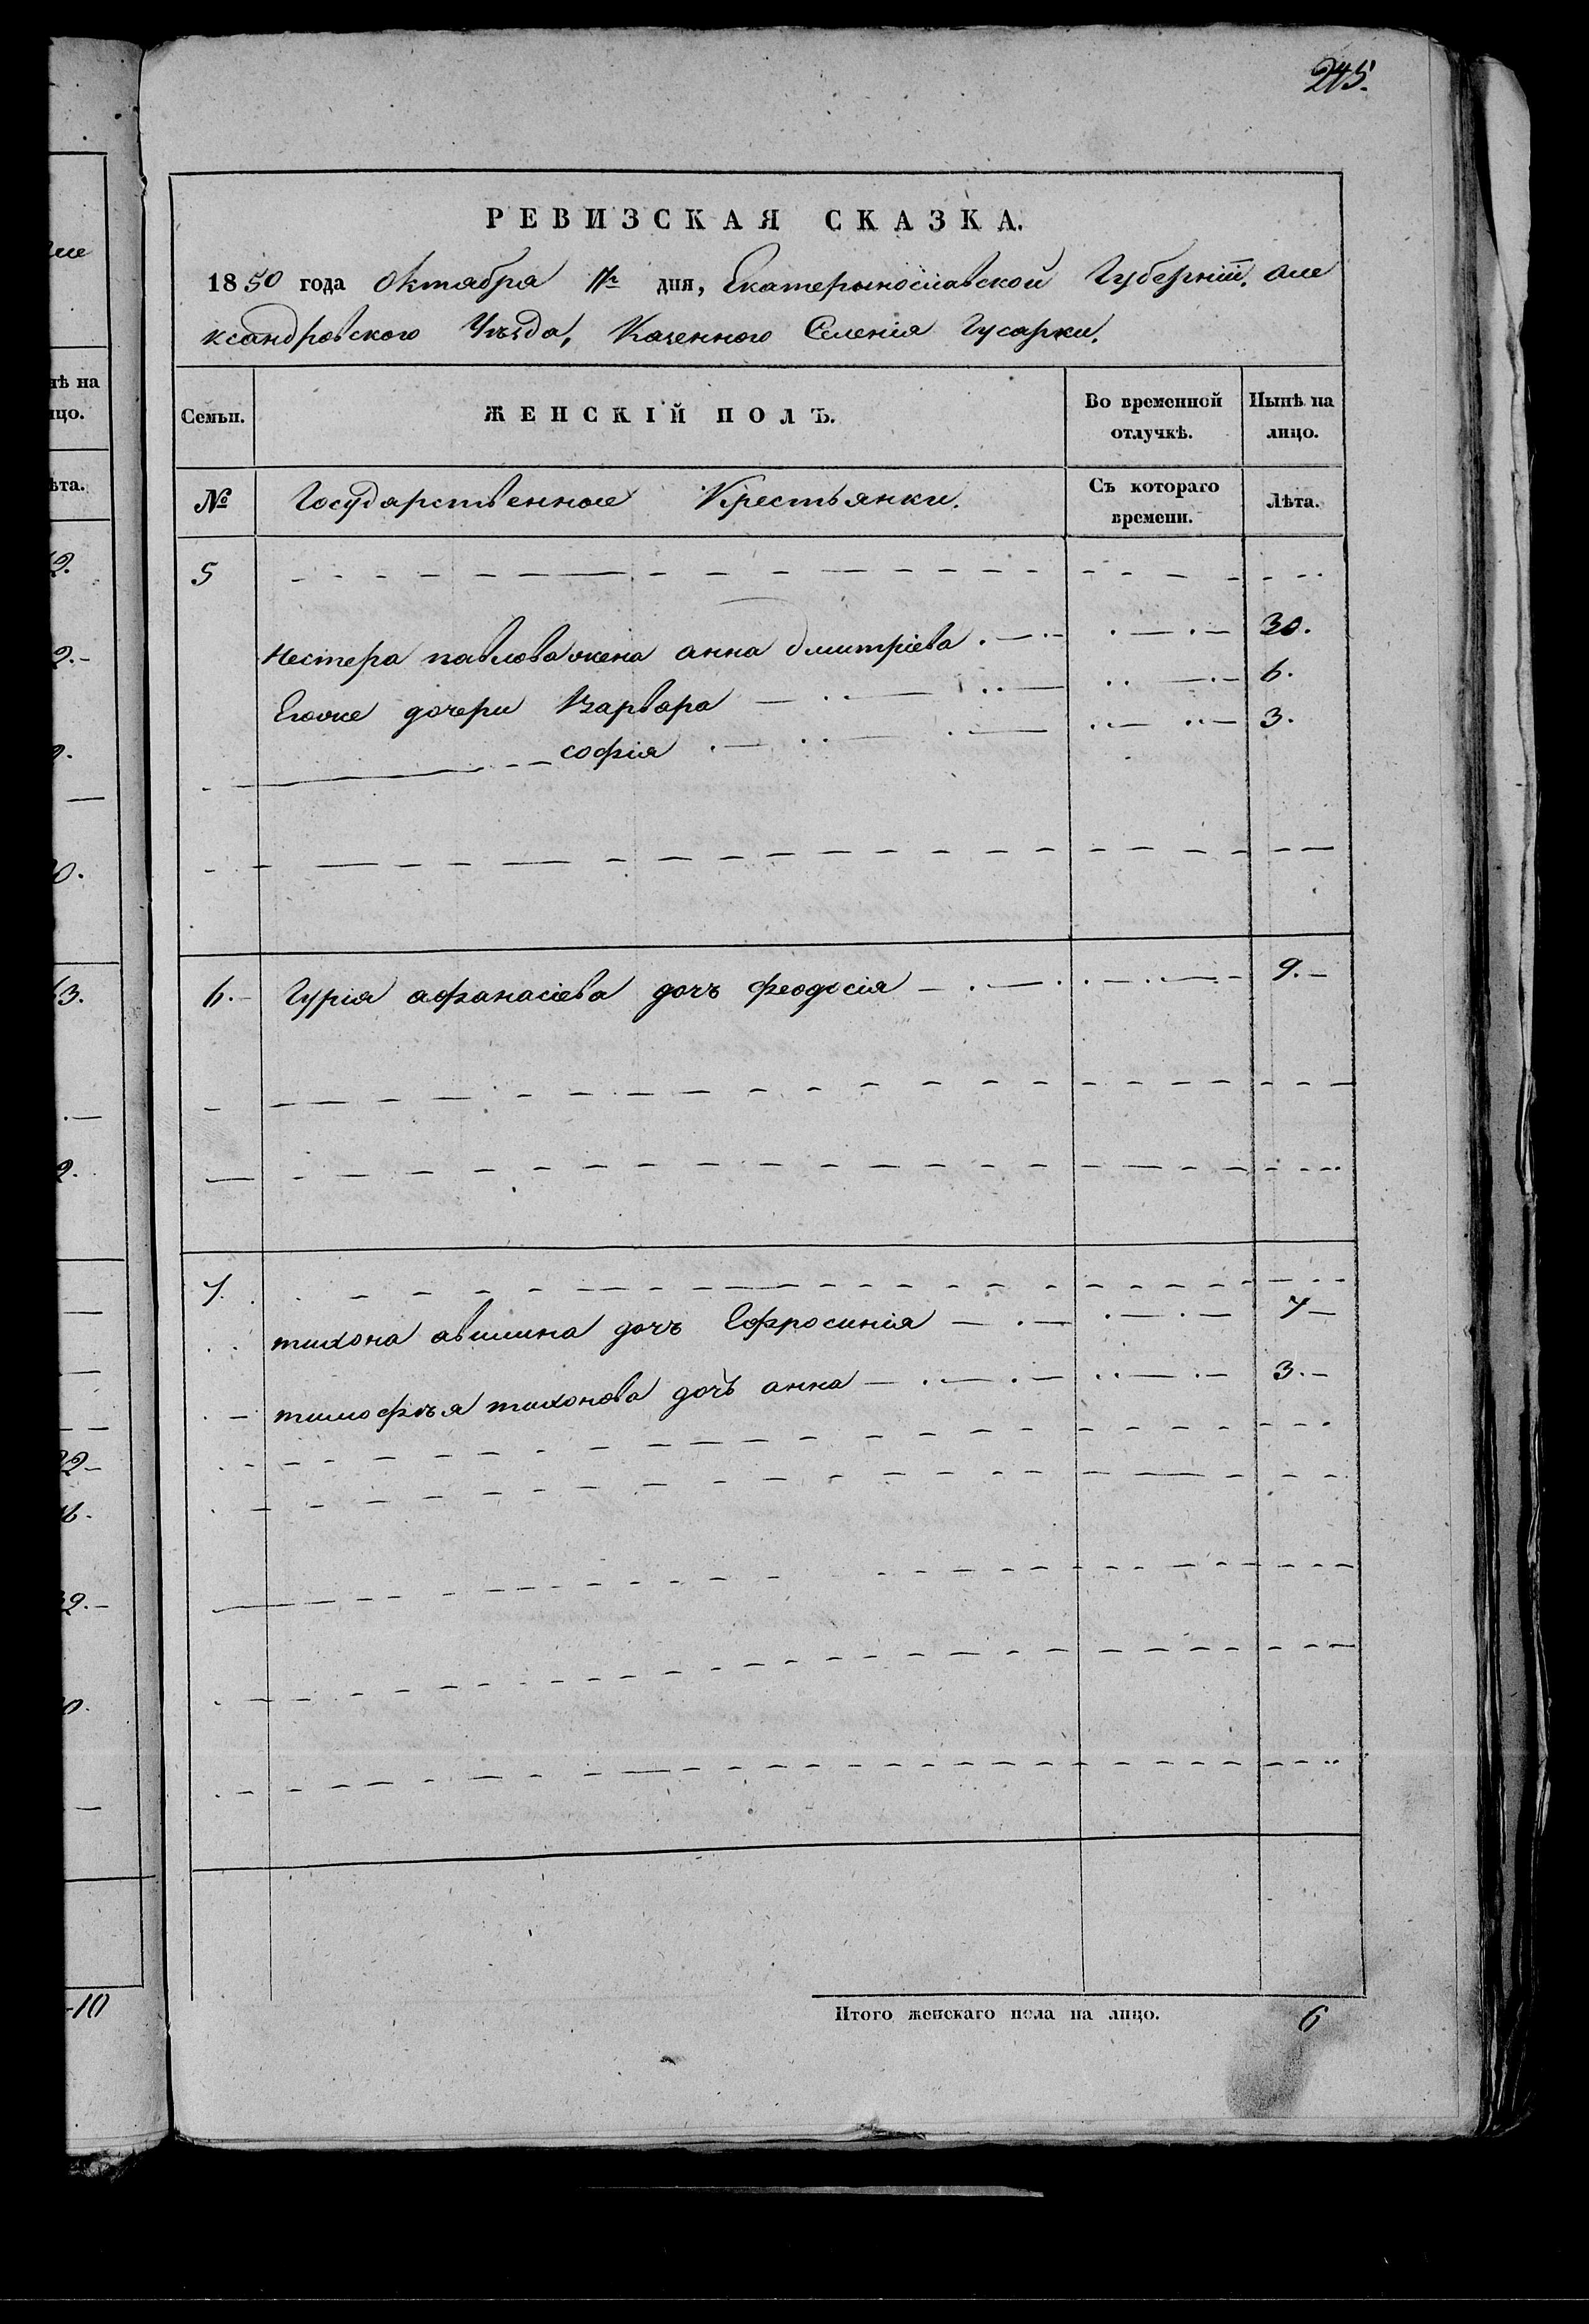 245.
РЕВИЗСКАЯ СКАЗКА.
1850 года Октября дня, Екатерынославской Губернии. Але
ксандровского Уѣзда, Казенного Селения Гусарки.
Семьи.
ЖЕНСКІЙ ПОЛЪ.
Во временной отлучкѣ.
Нынѣ на лицо.
№
Государственные Крестьянки.
Съ котораго времени.
Лѣта.
5
Нестера павлова жена анна дмитріева 30.
Егоже дочери Варвара 6.
софія 3.
6. Гурія афанасіева дочь феодосія 9.
7.
тихона авилина дочь Ефросинія 7
тимофѣя тихонова дочь анна 3.
Итого женскаго пола на лицо. 6
нѣ на
ицо.
ѣта.
2.
2.
0.
63.
2.
22
32.
10